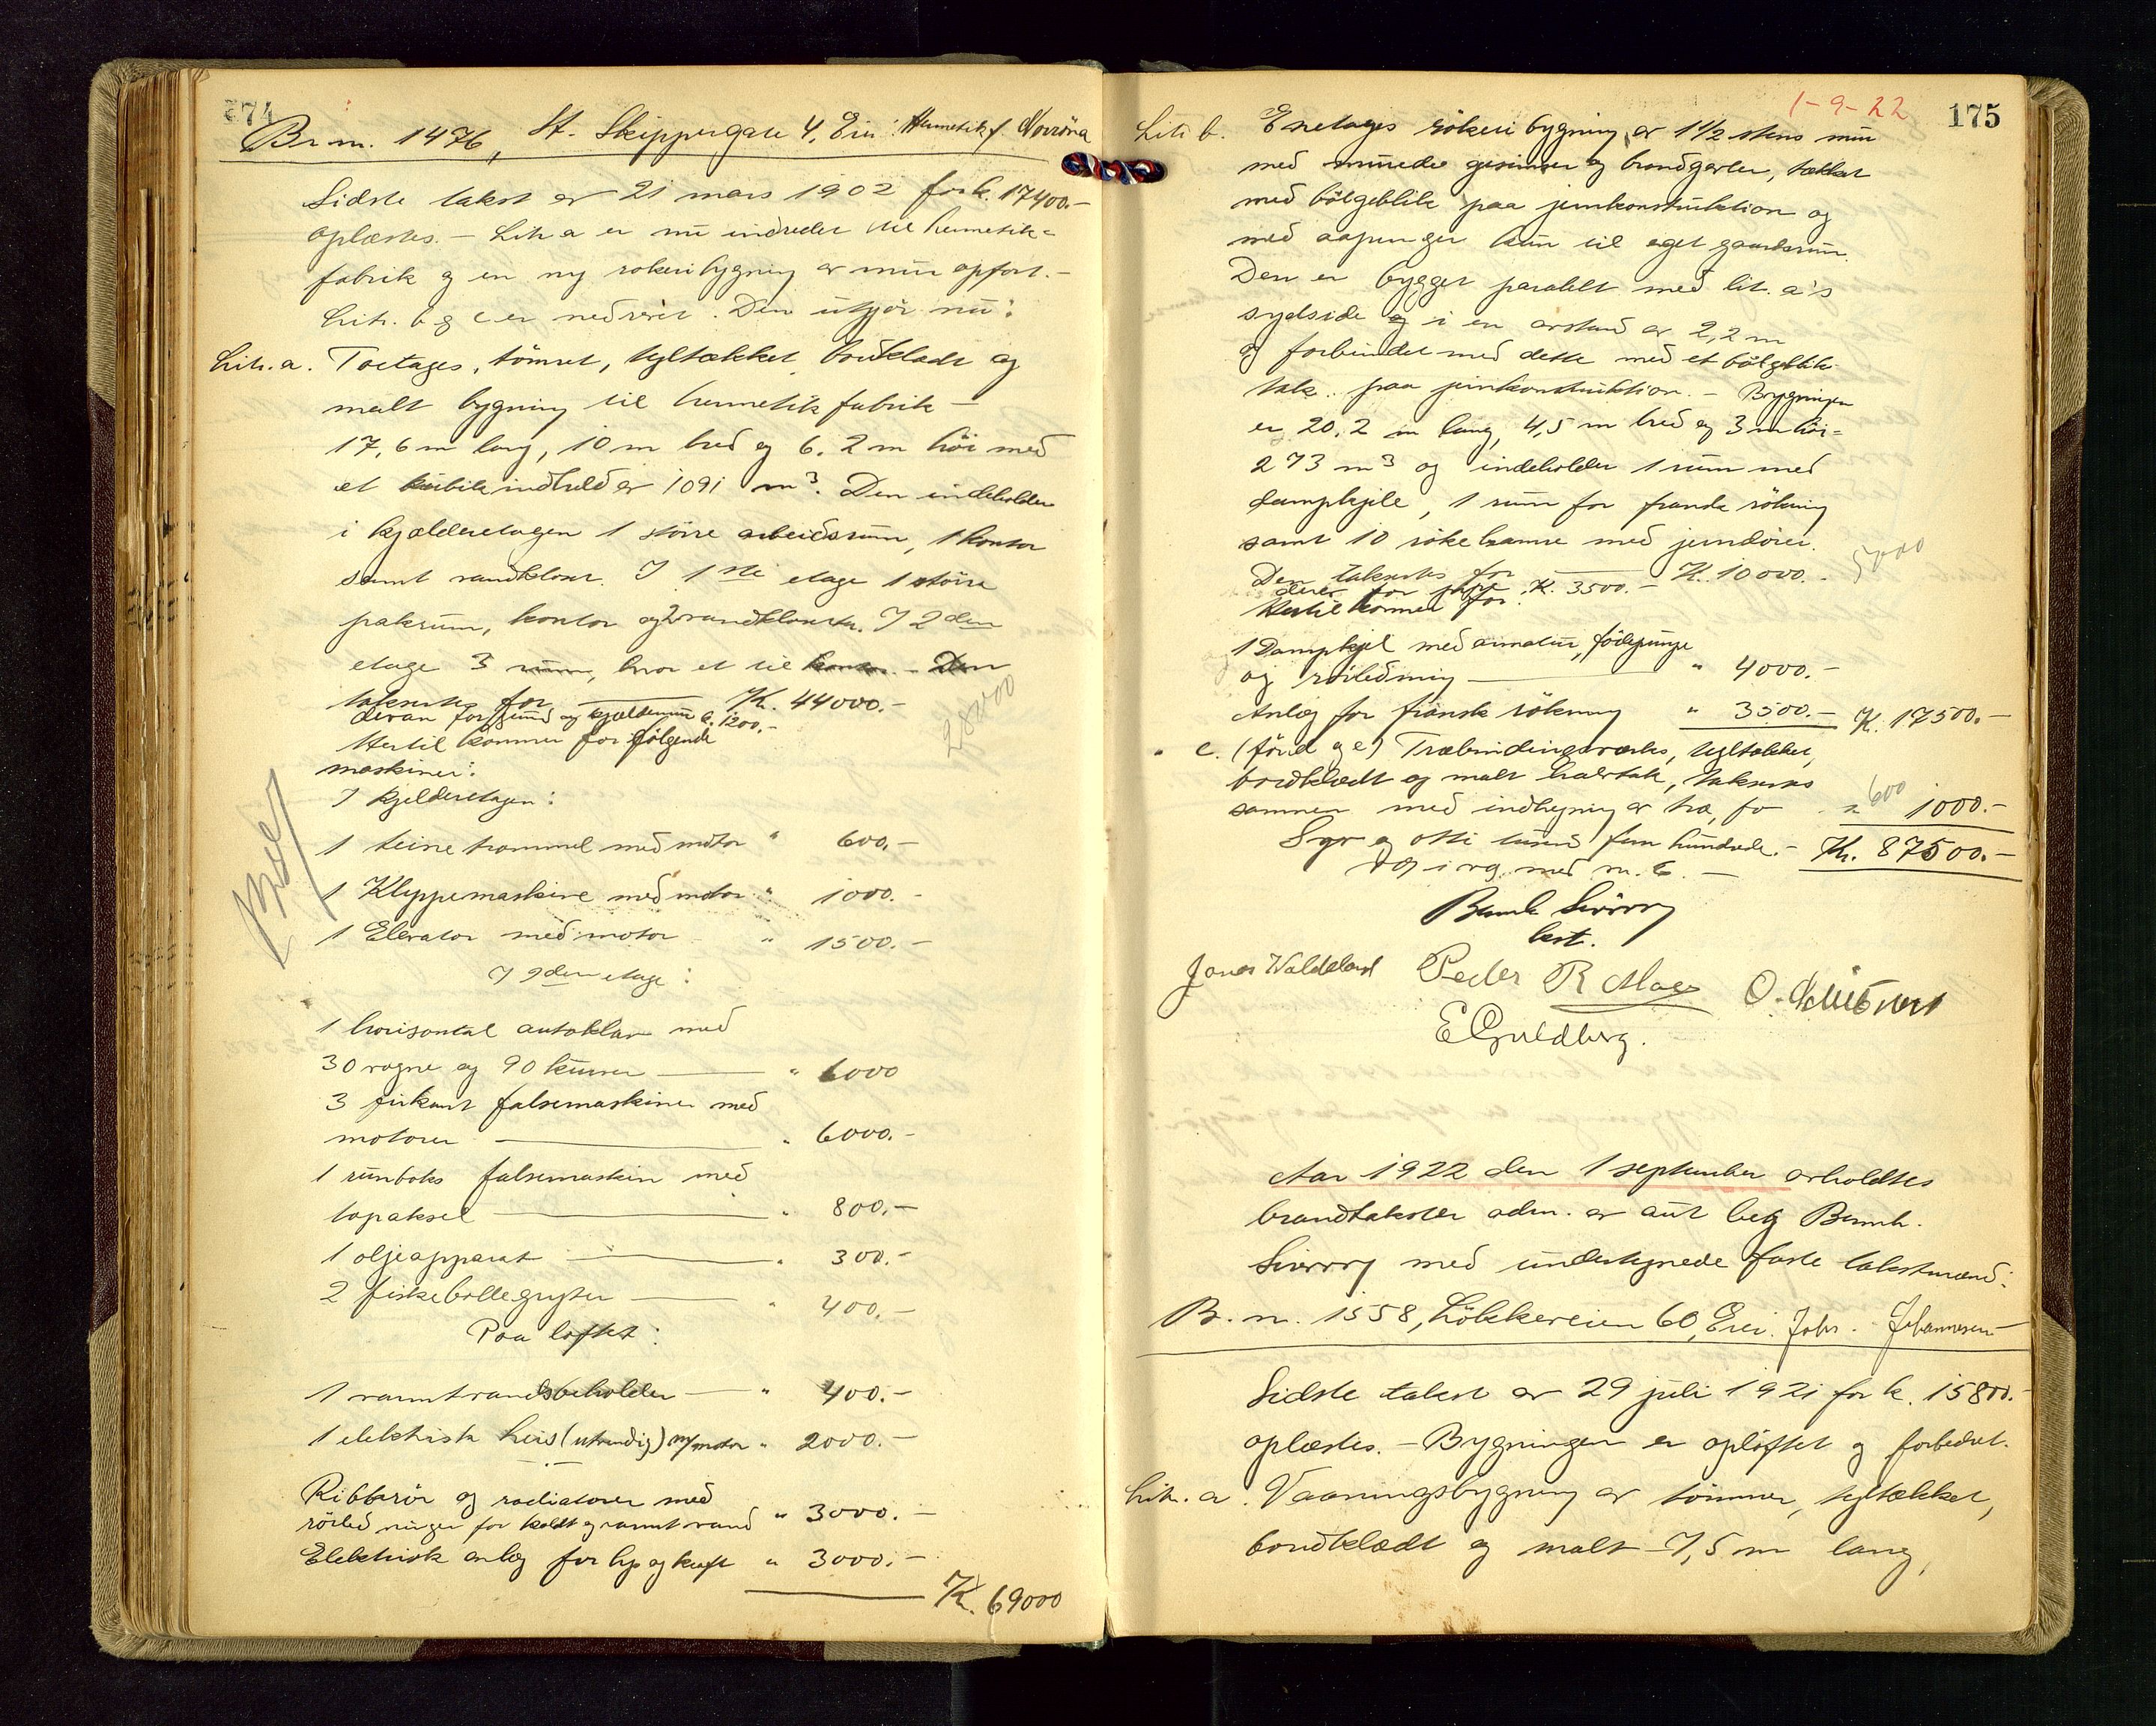 174
Br. nr. 1476, St. Skippergate 4, Eier: Hermetikf. Norröna
Sidste takst av 21 mars 1902 for k. 17400.-
oplæstes. - Litr. a er nu indredet til hermetik-
fabrik og en ny rökeribygning av mur opfört. -
Litr. b og c er nedrevet. Den utgjör nu:
Litr. a. Toetages, tömret, tegltækket, bordklædt og
malt bygning til hermetikfabrik -
17,6 m lang, 10 m bred og 6,2 m höi med
et kubikindhold av 1091 m³. Den indeholder
i kjælderetagen 1 större arbeidsrum, 1 kontor
samt vandkloset. I 1ste etage 1 större
pakrum, kontor og 2 vandklosetter. I 2den
etage 3 rum, hvor et til kontor. - Den
takseres for K. 44000.-
derav for grund og kjældermur k. 1200.-
28000
Hertil kommer for følgende
maskiner:
I kjelderetagen:
1 teinetrommel med motor " 600.-
1 Klippemaskine med motor " 1000.-
1 Elevator med motor " 1500.-
I 2den etage:
1 horisontal autoklav med
30 vogne og 90 kurver " 6000
3 firkant falsemaskiner med
motorer " 6000.-
1 rundboks falsemaskin med
topaksel " 800.-
1 oljeapparat " 300.-
2 fiskebollegryter " 400.-
Paa loftet:
1 varmtvandsbeholder " 400.-
1 elektrisk heis (utvendig) m/motor " 2000.-
Ribberör og radiatorer med
rörledninger for koldt og varmt vand " 3000.-
Elektrisk anlæg for lys og kraft " 3000.-
K. 69000
1-9-22 175
Litr. b. Enetages rökeribygning av 1 1/2 stens mur
med murede gesimser og brandgavler, tækket
med bölgeblik paa jernkonstruktion og
med aapninger kun til eget gaardsrum.
Den er bygget paralelt med lit. a's
sydside og i en avstand av 2,2 m
og forbundet med dette med et bölgeblik
tak paa jernkonstruktion. - Bygningen
er 20,2 m lang, 4,5 m bred og 3 m höi =
273 m³ og indeholder 1 rum med
dampkjele, 1 rum for fransk rökning
samt 10 rökekamre med jerndörer.
Den takseres for K. 10000.-
5000
derav for K. 3500.-
Hertil kommer for:
1 Dampkjel med armatur, födepumpe
og rörledning " 4000.-
Anlæg for fransk rökning " 3500.- K. 17500.-
" c. (för d og e) Træbindingsverks, tegltækket,
bordklædt og malt halvtak, takseres
sammen med indhegning av træ, for " 600 1000.-
Syv og otti tusend fem hundrede. - Kr. 87500.-
Bernh. Sivörry
best.
Jonas Waldeland Peder R Moe
E Guldberg.
Aar 1922 den 1 september avholdtes
brandtakster adm. av aut. bey Bernh.
Sivörry med undertegnede faste takstmænd:
B. nr. 1558, Lökkeveien 60, Eier: Johs. Johannesen
Sidste takst av 29 juli 1921 for k. 15800.-
oplæstes. - Bygningen er oplöftet og forbedret.
Litr. a. Vaaningsbygning av tömmer, tegltækket,
bordklædt og malt 7,5 m lang,